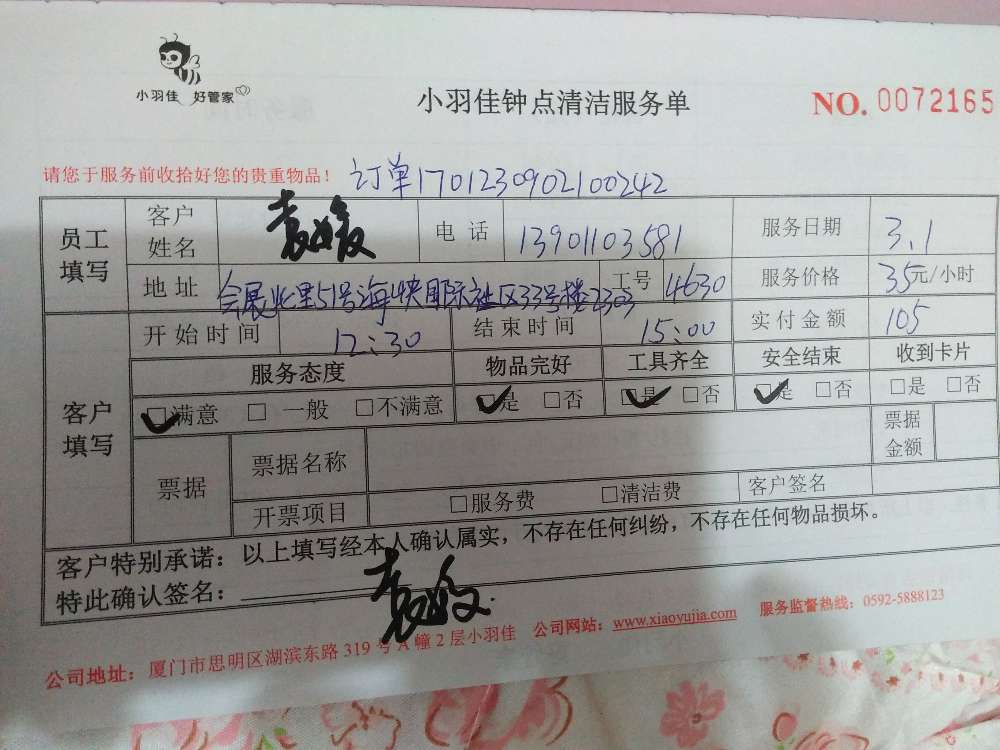 小羽佳 好管家
小羽佳钟点清洁服务单
NO. 0072165
请您于服务前收拾好您的贵重物品! 订单1701230902100242
员工填写 客户姓名 袁媛 电话 13901103581 服务日期 3.1
地址 会展北里51号海峡国际社区33号楼2303 工号 4630 服务价格 35元/小时
开始时间 12:30 结束时间 15:00 实付金额 105
客户填写 服务态度 物品完好 工具齐全 安全结束 收到卡片
☑满意 □一般 □不满意 ☑是 □否 ☑是 □否 ☑是 □否 □是 □否
票据 票据名称 票据金额
开票项目 □服务费 □清洁费 客户签名
客户特别承诺:以上填写经本人确认属实,不存在任何纠纷,不存在任何物品损坏。
特此确认签名: 袁媛
公司地址:厦门市思明区湖滨东路319号A幢2层小羽佳 公司网站:www.xiaoyujia.com 服务监督热线:0592-5888123